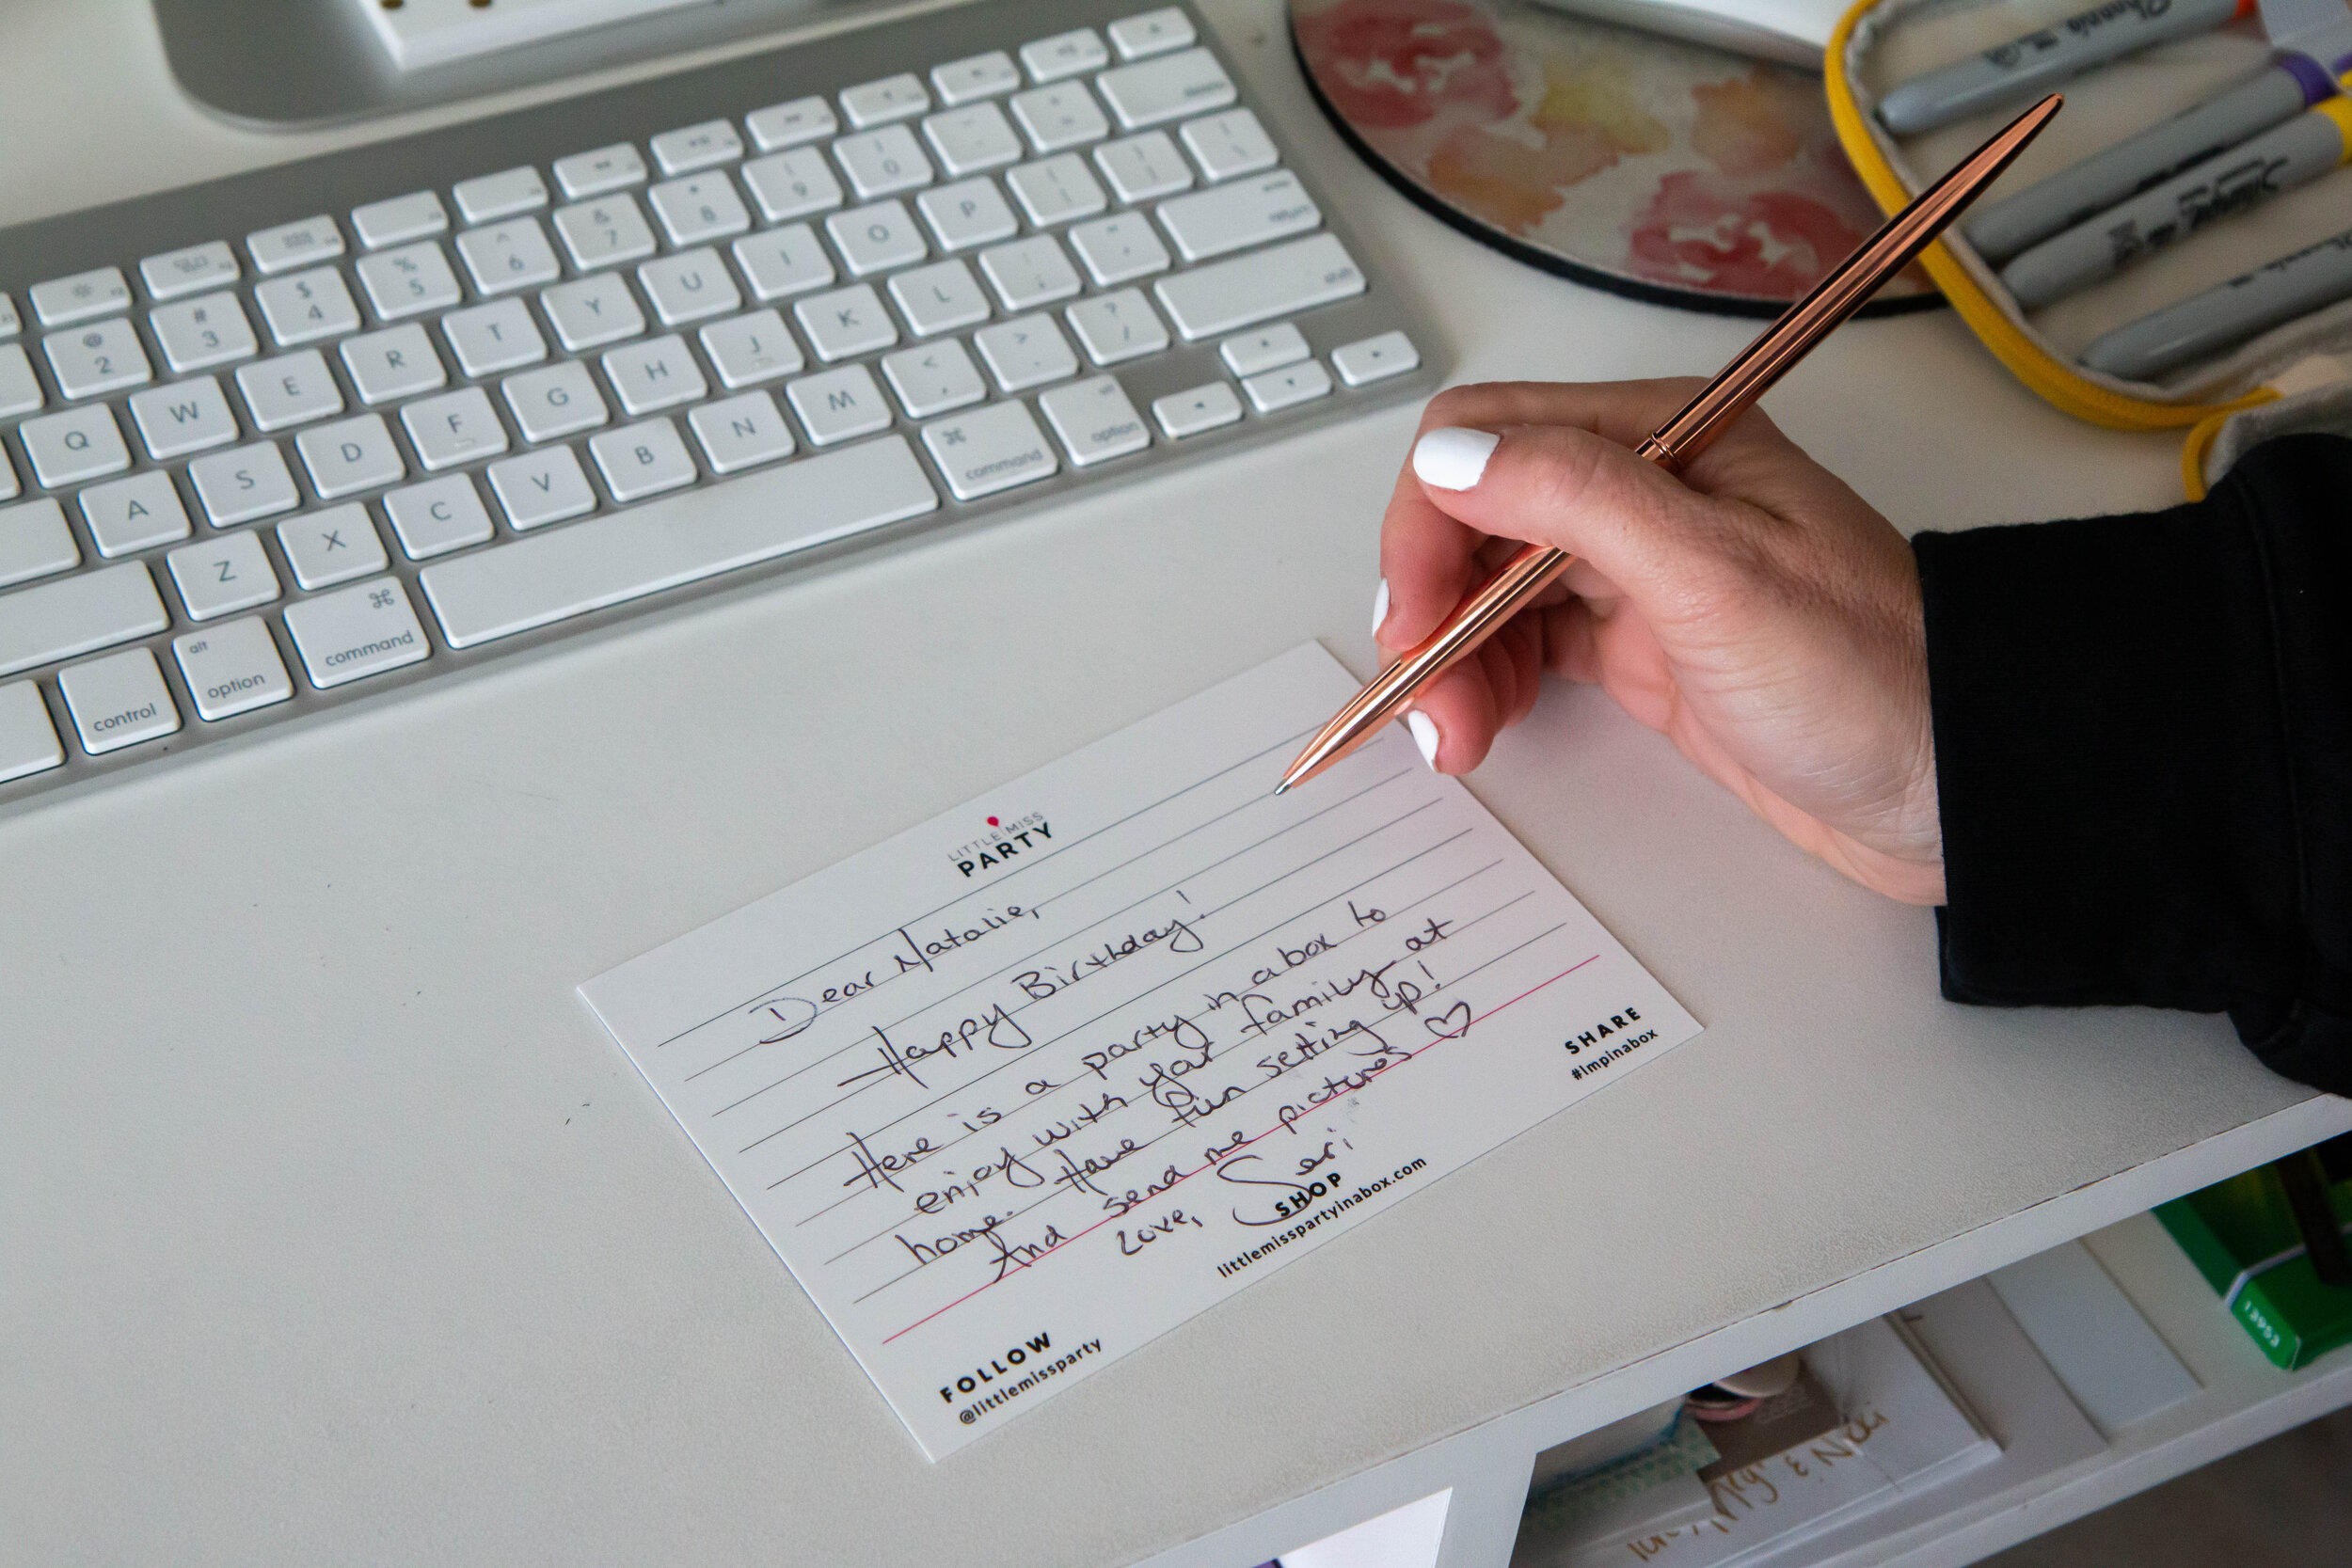 @ 2
# 3
$ 4
% 5
^ 6
& 7
* 8
( 9
) 0
Q W E R T Y U I O P
return
A S D F G H J K L
shift
Z X C V B N M < , > . ? /
control
alt option
⌘ command
⌘ command
alt option
Sharpie
Sharpie
LITTLE MISS
PARTY
Dear Natalie,
Happy Birthday!
Here is a party in a box to
enjoy with your family at
home. Have fun setting up!
And send me pictures ♡
Love, Seri
FOLLOW
@littlemissparty
SHOP
littlemisspartyinabox.com
SHARE
#lmpinabox
13953